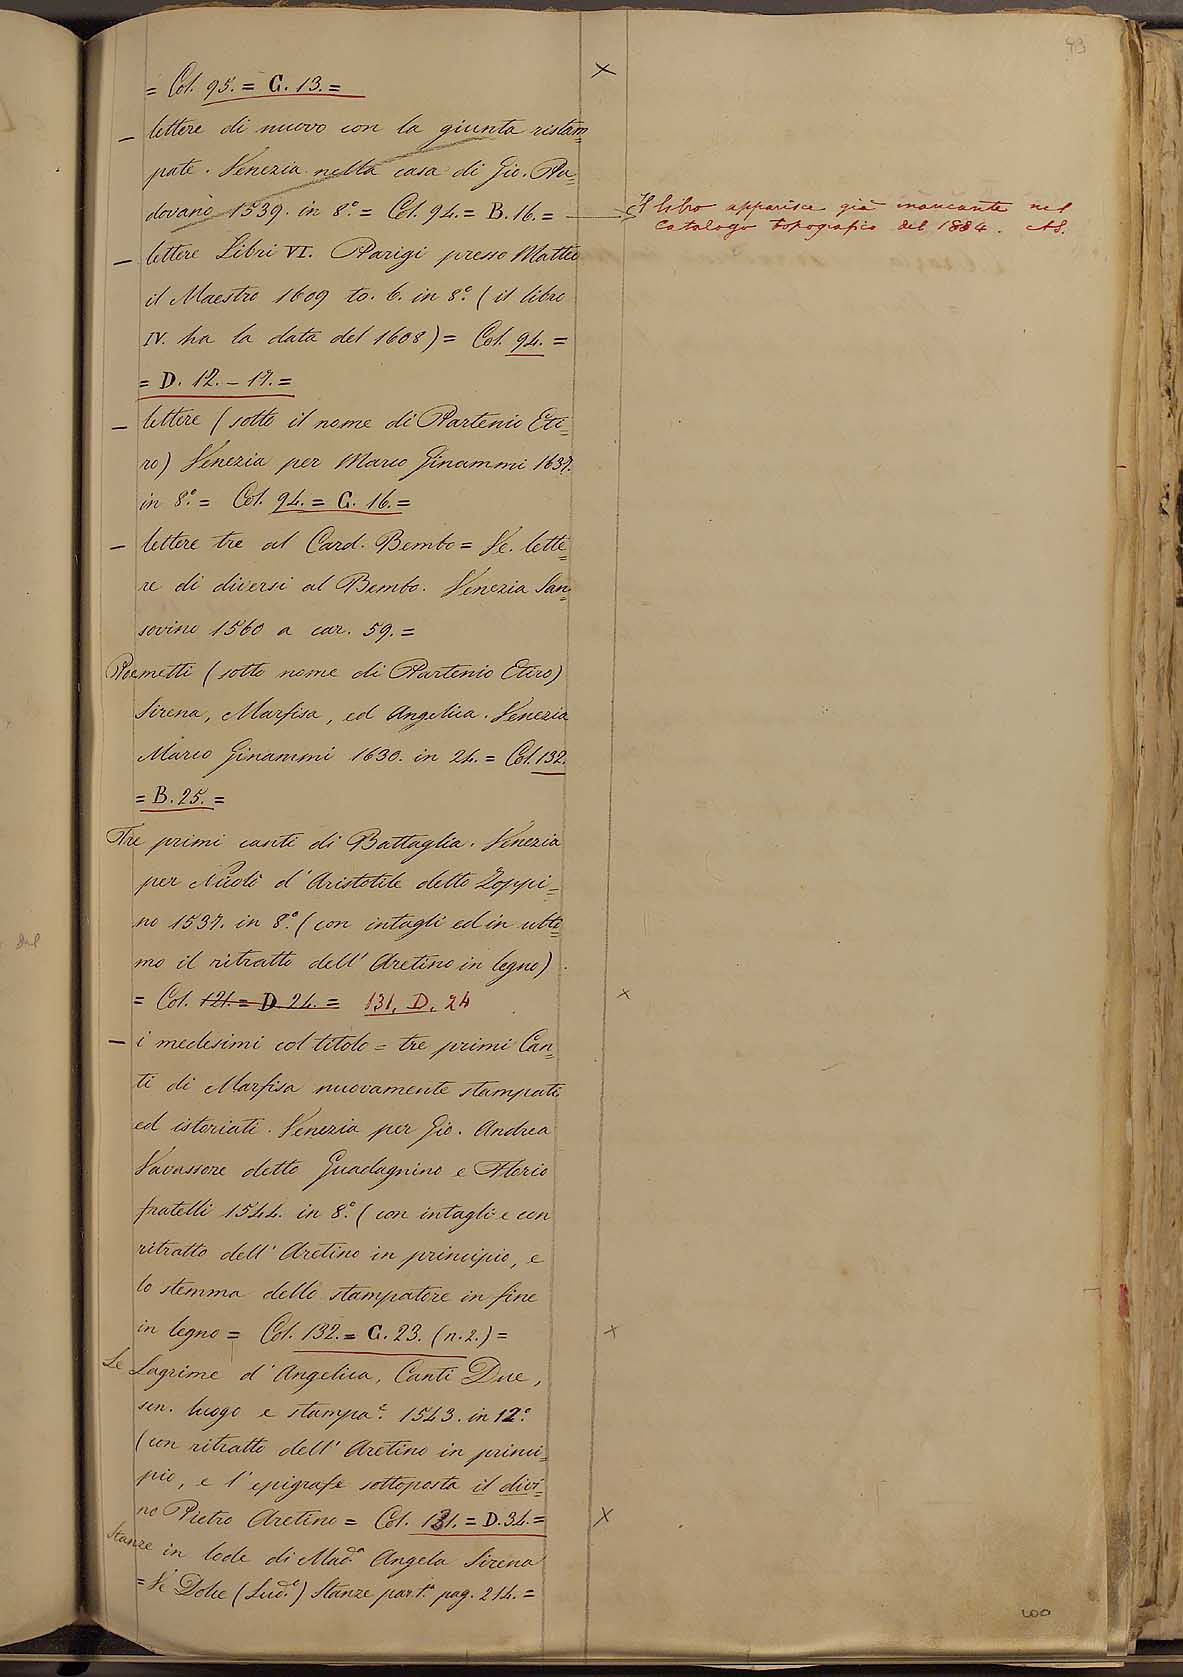 43
= Col. 95. = G. 13. =
– lettere di nuovo con la giunta ristam=
pate. Venezia nella casa di Gio. Pa=
dovano 1539. in 8.° = Col. 94. = B. 16. =
Il libro apparisce già mancante nel
Catalogo topografico del 1884. AS.
– lettere Libri VI. Parigi presso Matteo
il Maestro 1609 to. 6. in 8.° (il libro
IV. ha la data del 1608) = Col. 94. =
= D. 12. – 17. =
– lettere (sotto il nome di Partenio Eti=
ro) Venezia per Marco Ginammi 1637.
in 8.° = Col. 94. = G. 16. =
– lettere tre al Card. Bembo = Ve. lette=
re di diversi al Bembo. Venezia San=
sovino 1560 a car. 59. =
Poemetti (sotto nome di Partenio Etiro)
Sirena, Marfisa, ed Angelica. Venezia
Marco Ginammi 1630. in 24. = Col. 132.
= B. 25. =
Tre primi canti di Battaglia. Venezia
per Nicolò d'Aristotile detto Zoppi=
no 1537. in 8.° (con intagli ed in ulti=
mo il ritratto dell'Aretino in legno)
= Col. 121. = D. 24. = 131. D. 24
– i medesimi col titolo = tre primi Can=
ti di Marfisa nuovamente stampati
ed istoriati. Venezia per Gio. Andrea
Vavassore detto Guadagnino e Florio
fratelli 1544. in 8.° (con intagli e con
ritratto dell'Aretino in principio, e
lo stemma dello stampatore in fine
in legno = Col. 132. = G. 23. (n. 2.) =
Le Lagrime d'Angelica, Canti Due,
sen. luogo e stampa.e 1543. in 12.°
(con ritratto dell'Aretino in princi=
pio, e l'epigrafe sottoposta il divi=
no Pietro Aretino = Col. 131. = D. 34. =
Stanze in lode di Mad.a Angela Sirena
= Ve Dolce (Lud.o) Stanze par. 1.a pag. 214. =